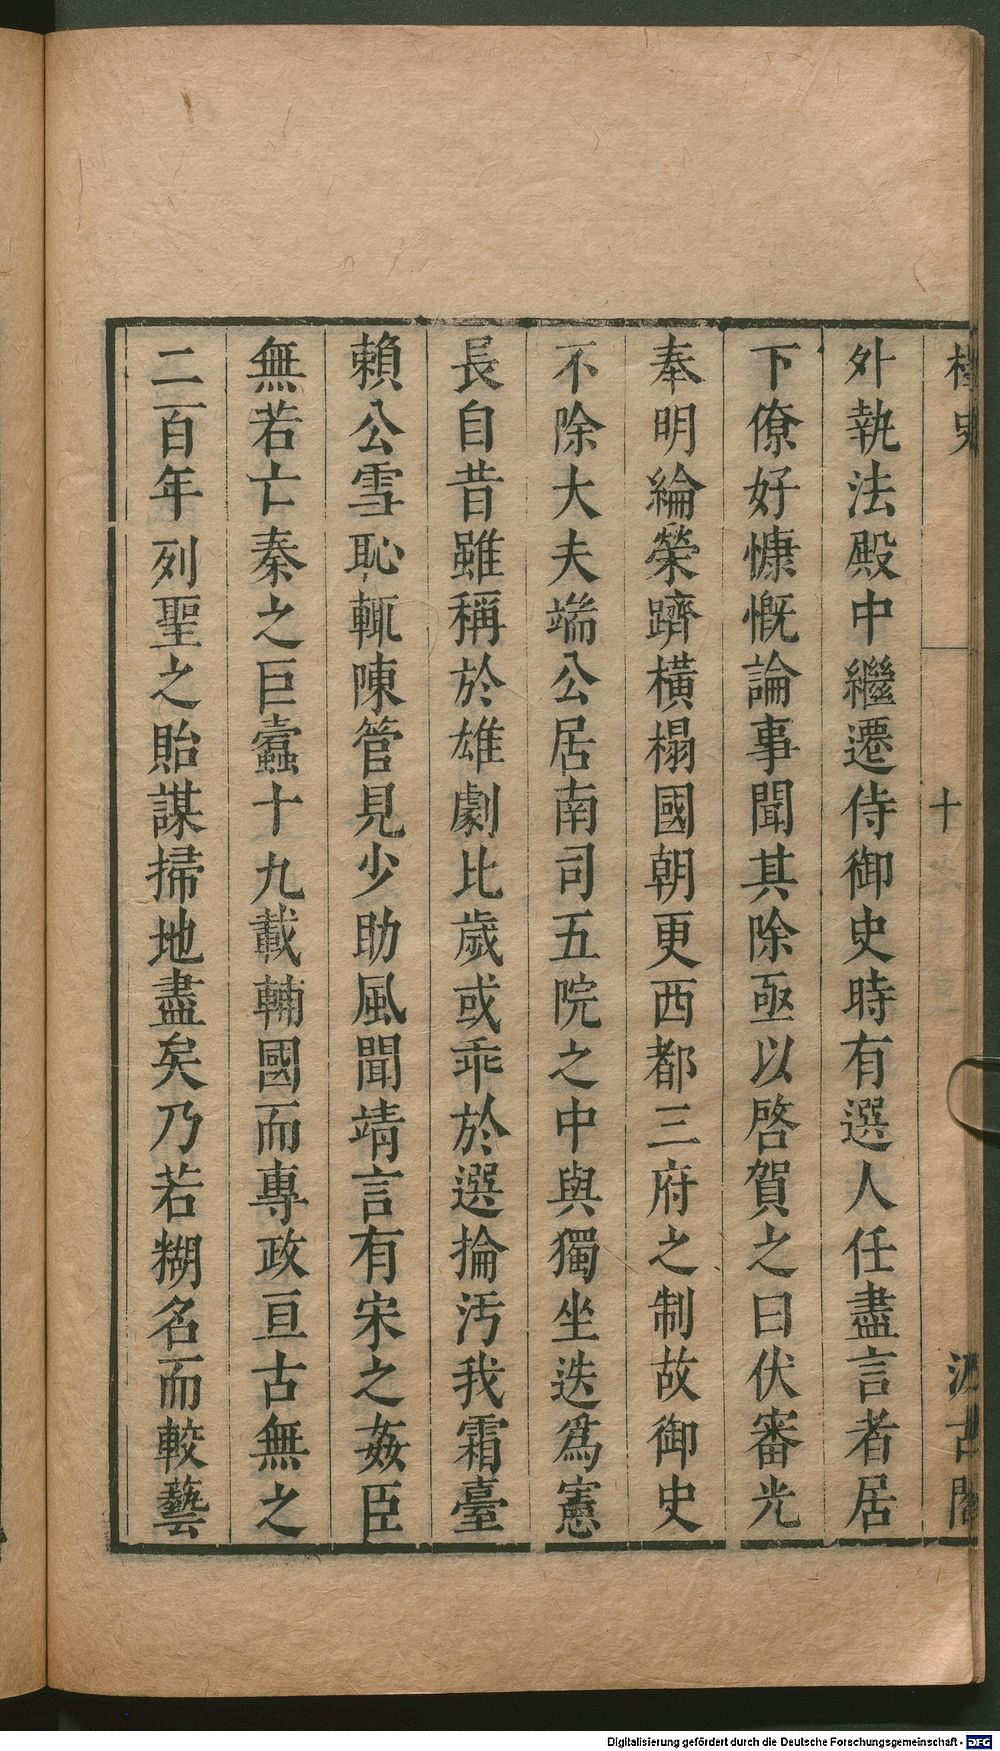 桯史
十
汲古閣
外執法殿中繼遷侍御史時有選人任盡言者居
下僚好慷慨論事聞其除亟以啓賀之曰伏審光
奉明綸榮躋橫榻國朝更西都三府之制故御史
不除大夫端公居南司五院之中與獨坐迭爲憲
長自昔雖稱於雄劇比歲或乖於選掄汚我霜臺
賴公雪恥輒陳管見少助風聞靖言有宋之姦臣
無若亡秦之巨蠹十九載輔國而專政亘古無之
二百年列聖之貽謀掃地盡矣乃若糊名而較藝
Digitalisierung gefördert durch die Deutsche Forschungsgemeinschaft - DFG